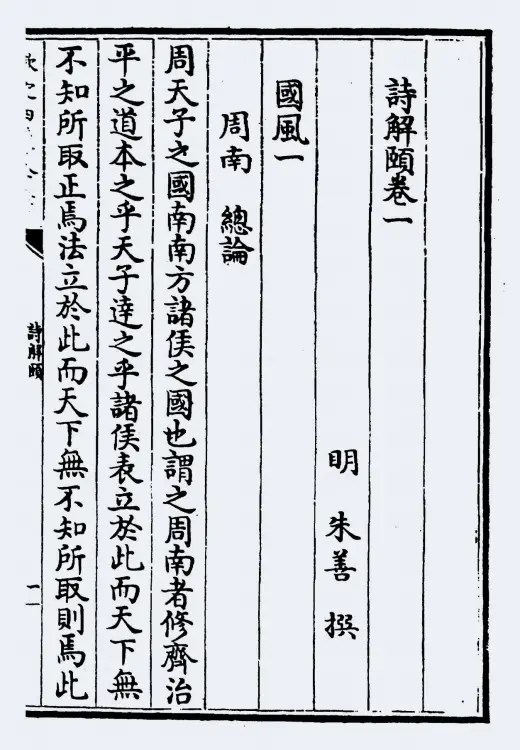 詩解頤卷一
明 朱善 撰
國風一
周南 總論
周天子之國南南方諸侯之國也謂之周南者修齊治
平之道本之乎天子達之乎諸侯表立於此而天下無
不知所取正焉法立於此而天下無不知所取則焉此
詩解頤
一